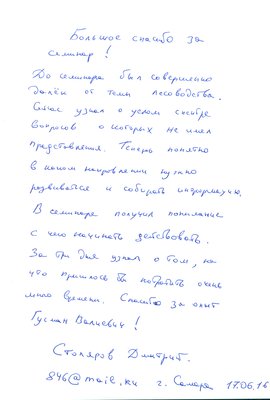 Большое спасибо за
семинар!
До семинара был совершенно
далёк от темы лесоводства.
Сейчас узнал о целом спектре
вопросов о которых не имел
представления. Теперь понятно
в каком направлении нужно
развиваться и собирать информацию.
В семинаре получил понимание
с чего начинать действовать.
За три дня узнал о том, на
что пришлось бы потратить очень
много времени. Спасибо за опыт
Гусман Валиевич!
Столяров Дмитрий.
846@mail.ru г. Самара 17.06.16